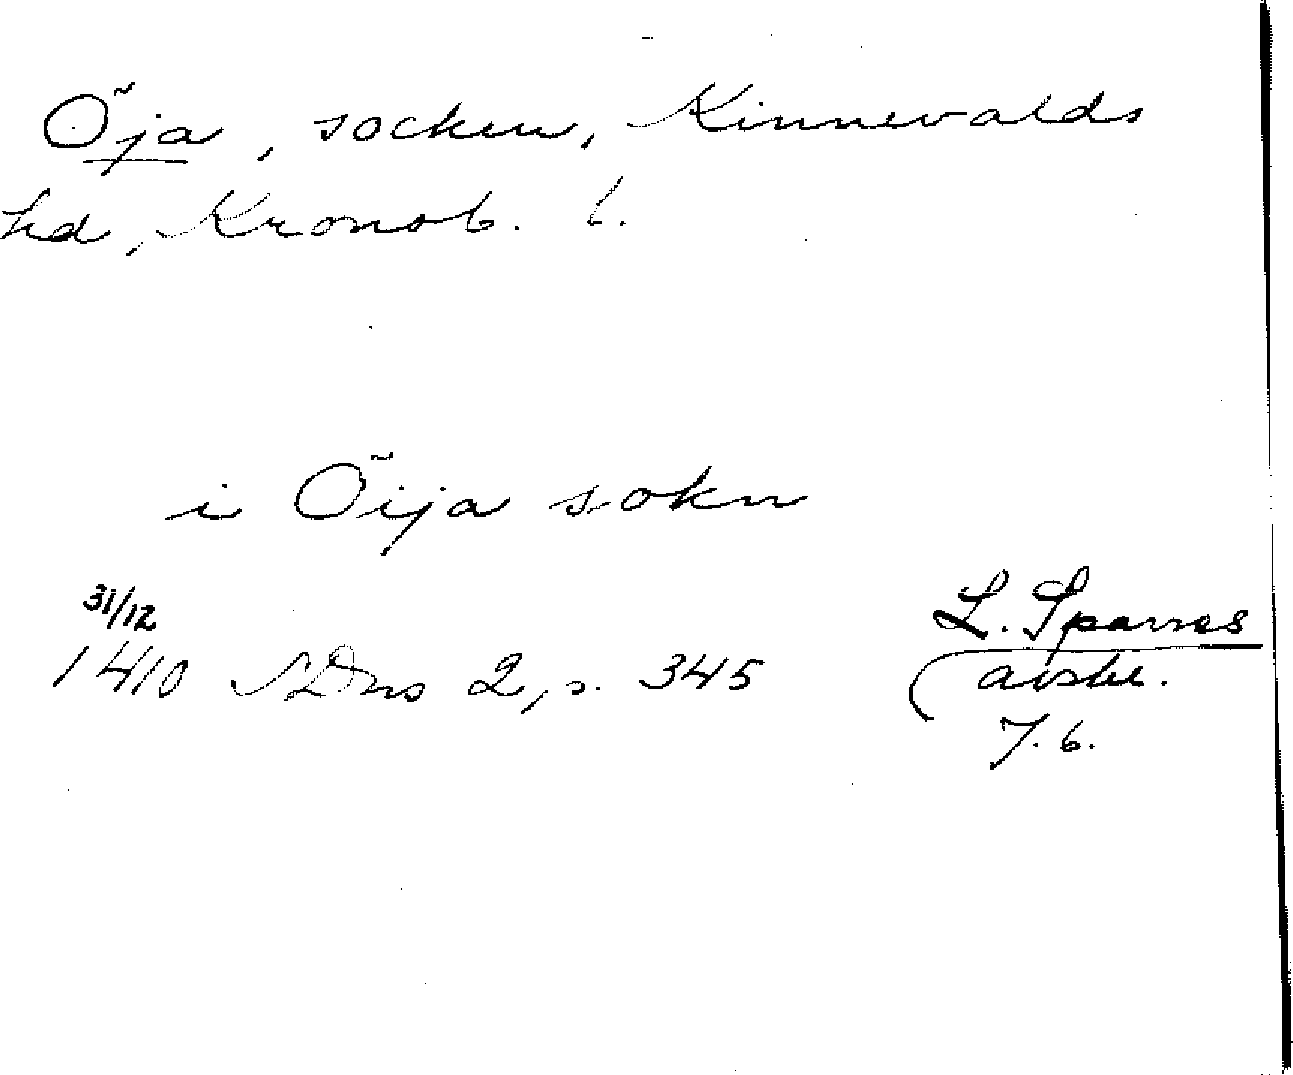 Öja, socken, Kinnevalds
hd, Kronob. l.
i Öija sokn
31/12
1410 SDns 2, s. 345
L. Sparres
avskr.
7. 6.